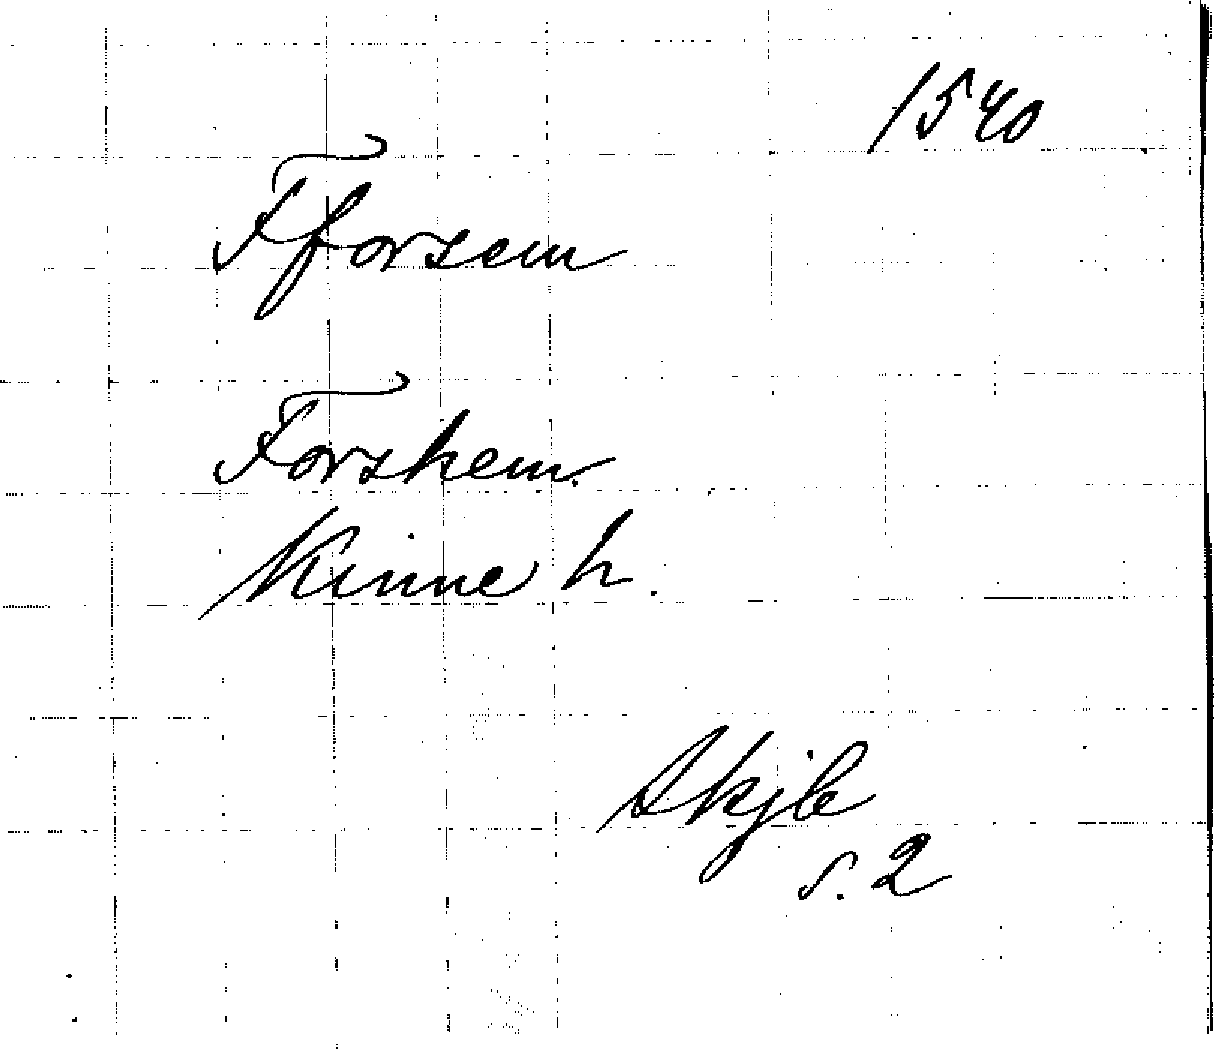 1540
Fforsem
Forshem.
Kinne h.
Skjb
s. 2